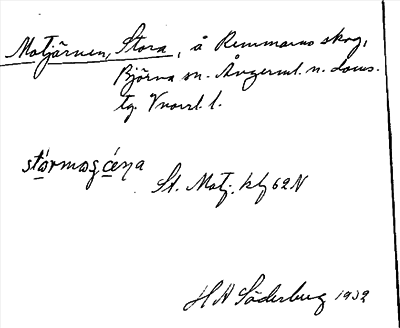 Motjärnen, Stora, å Remmarns skog,
Björna sn. Ångerml. n. doms.
tg. Vnorrl. l.
stórmogćeŋa
St. Motj. kbl 62N
H A Söderberg 1932